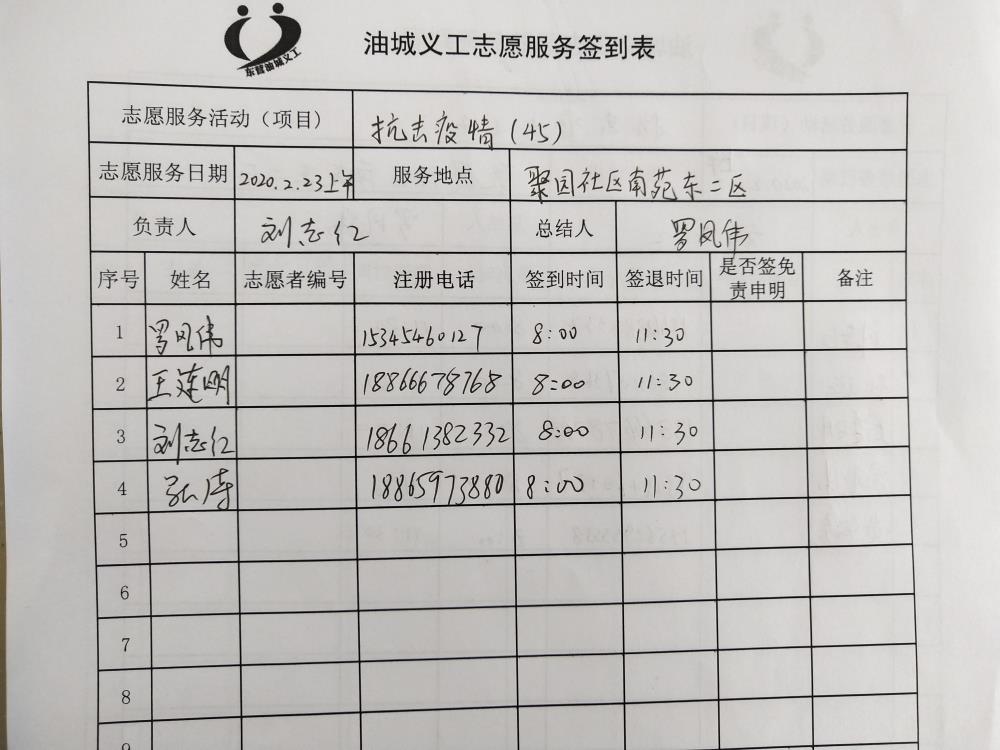 东营油城义工
油城义工志愿服务签到表
志愿服务活动（项目） 抗击疫情（45）
志愿服务日期 2020.2.23上午 服务地点 聚园社区南苑东二区
负责人 刘志红 总结人 罗凤伟
序号 姓名 志愿者编号 注册电话 签到时间 签退时间 是否签免责申明 备注
1 罗凤伟 15345460127 8:00 11:30
2 王连明 18866678768 8:00 11:30
3 刘志红 18661382332 8:00 11:30
4 弘涛 18865973880 8:00 11:30
5
6
7
8
9